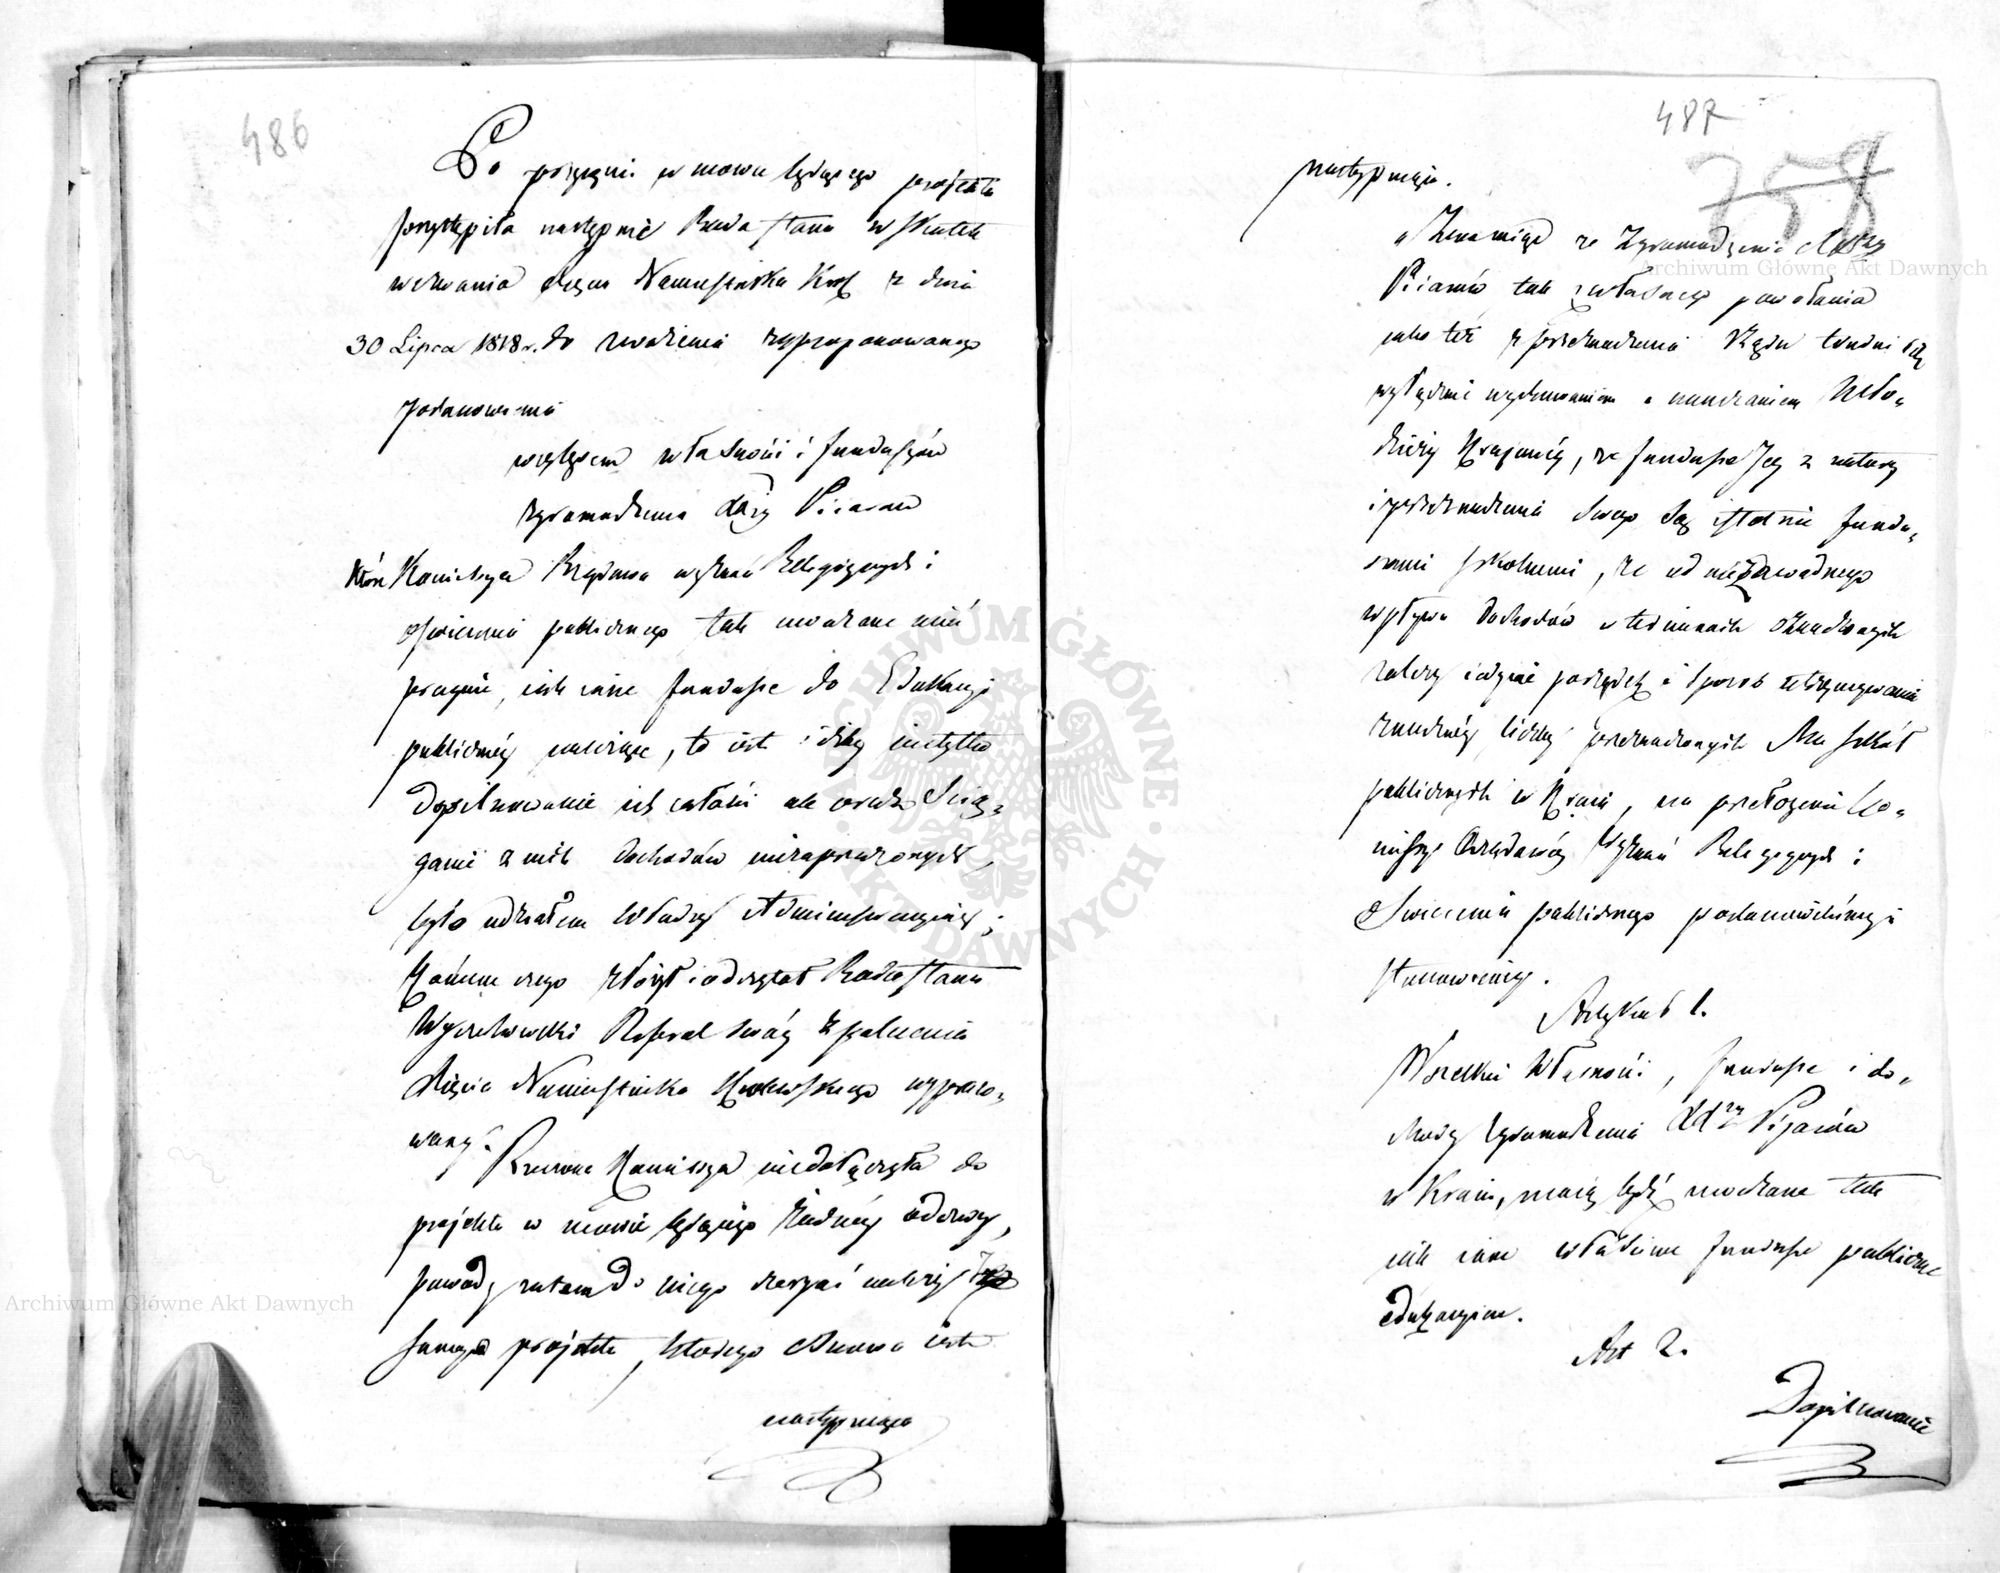 486
Po przyjęciu w mowie będącego projektu
przystąpiła następnie Rada Stanu w skutek
wezwania Xięcia Namiestnika Król z dnia
30 Lipca 1818 r. do zważenia zaproponowanego
postanowienia
względem własności i funduszów
zgromadzenia XXży Piiarów
które Kommissya Rządowa wyznań Religiynych i
Oświecenia publicznego tak uważane mieć
pragnie, jak inne fundusze do Edukacyi
publicznéy należące, to iest: iżby nietylko
dopilnowanie ich całości ale oraz Ścią-
ganie z nich dochodów niezaprzeczonych,
było udziałem Władzy Administracyiney;
Końcem czego złożył i odczytał Radca Stanu
Wyczechowski Referat swóy z polecenia
Xięcia Namiestnika Królewskiego wypraco-
wany.
Rzeczona Kommissya niedołączyła do
projektu w mowie będącego żadnéy odezwy,
powody zatem do niego czerpać należy z
samego projektu, którego osnowa iest
następuiąca
487
358
następuiąca.
„Zważaiąc że Zgromadzenie XXży
Piiarów tak z własnego powołania
jako też z przeznaczenia Rządu trudni się
wyłącznie wychowaniem i nauczaniem Mło-
dzieży Kraiowéy, że fundusze Jey z natury
i przeznaczenia swego są istotnie fundu-
szami szkolnemi, że od niezawodnego
wpływu dochodów w terminach oznaczonych
zależy iedynie porządek i sposób utrzymywania
znacznéy liczby przeznaczonych dla szkół
publicznych w Kraiu, na przełożenie Ko-
missyi Rządowéy Wyznań Religiynych i
Oświecenia publicznego postanowiliśmy i
stanowiemy.
Artykuł 1.
Wszelkie własności, fundusze i do-
chody Zgromadzenia XXży Pijarów
w Kraiu, maią bydź uważane tak
jak inne właściwe fundusze publiczne
edukacyine.
Art 2.
Dopilnowanie
Archiwum Główne Akt Dawnych
Archiwum Główne Akt Dawnych
ARCHIWUM GŁÓWNE AKT DAWNYCH